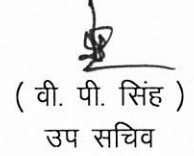 ( वी. पी. सिंह )
उप सचिव